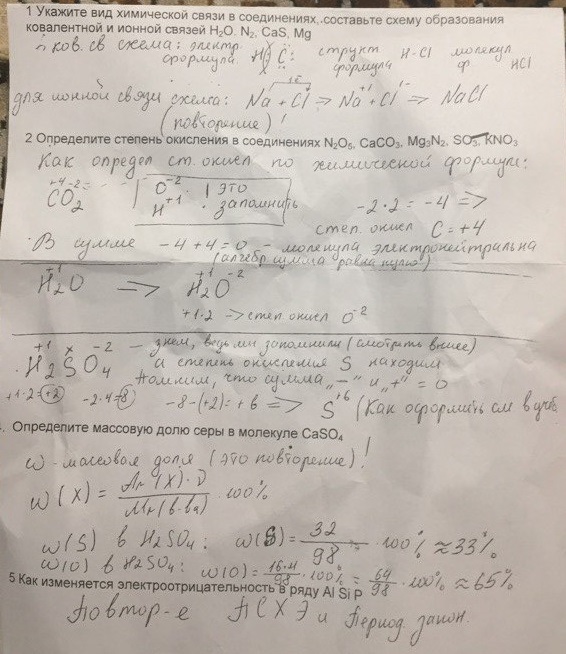 1 Укажите вид химической связи в соединениях, составьте схему образования
ковалентной и ионной связей H₂O. N₂, CaS, Mg
ков. св схема: электр. формула H C: структ формула H-Cl молекул ф. HCl
для ионной связи схема: Na + Cl ⇒ Na⁺¹ + Cl¹⁻ ⇒ NaCl
(повторение)!
2 Определите степень окисления в соединениях N₂O₅, CaCO₃, Mg₃N₂, SO₃, KNO₃
Как определ ст. окисл по химической формуле:
+4 -2
CO₂ O⁻² H⁺¹ это запомнить -2·2 = -4 =>
степ. окисл C = +4
В сумме -4+4=0 - молекула электронейтральна
(алгебр сумма равна нулю)
H₂⁺¹O → H₂⁺¹O⁻²
+1·2 → степ окисл O⁻²
+1 x -2
H₂SO₄ - знем, ведь мы запомнили (смотреть выше)
а степень окисления S находим
помним, что сумма "-" и "+" = 0
+1·2=+2 -2·4=-8 -8-(+2)=+6 => S⁺⁶ (Как оформить см в учеб.
Определите массовую долю серы в молекуле CaSO₄
ω - массовая доля (это повторение)!
ω(X) = Ar(X)·D / Mr(в-ва) · 100%
ω(S) в H₂SO₄: ω(S) = 32/98 · 100% ≈ 33%
ω(O) в H₂SO₄: ω(O) = 16·4/98 · 100% = 64/98 · 100% ≈ 65%
5 Как изменяется электроотрицательность в ряду Al Si P
Повтор-е ПСХЭ и Период. закон.